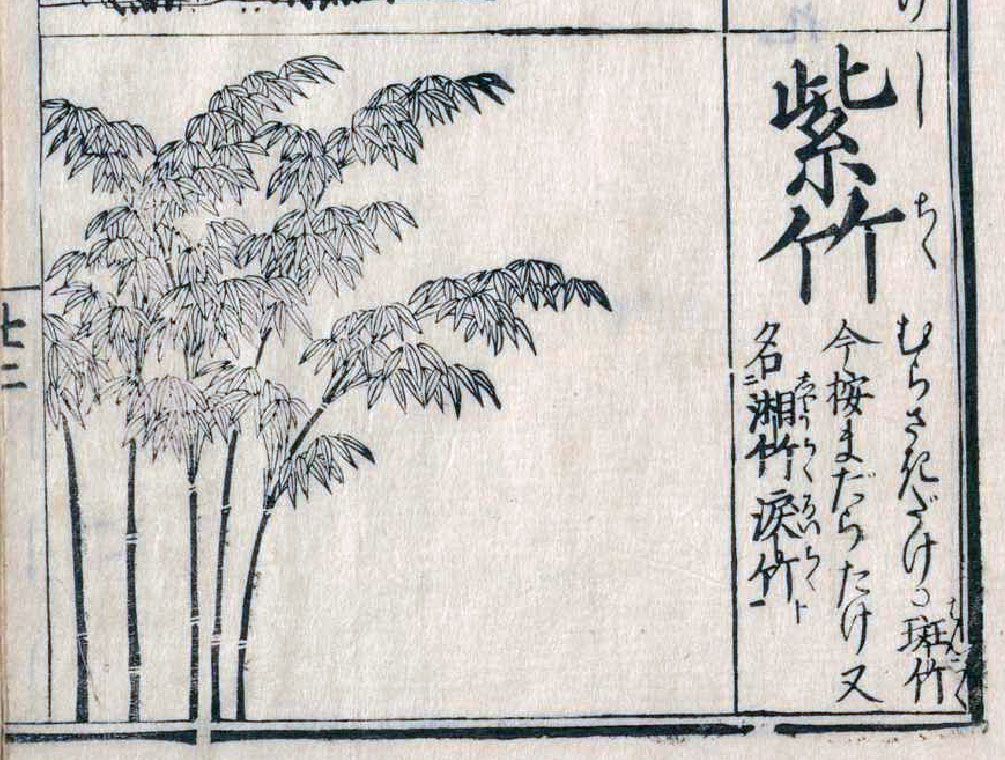 け
しちく
紫竹
むらさきだけ○斑竹
はんちく
今按まだらたけ又
名㆓湘竹涙竹㆒ト
しやうちくるいちく
七二